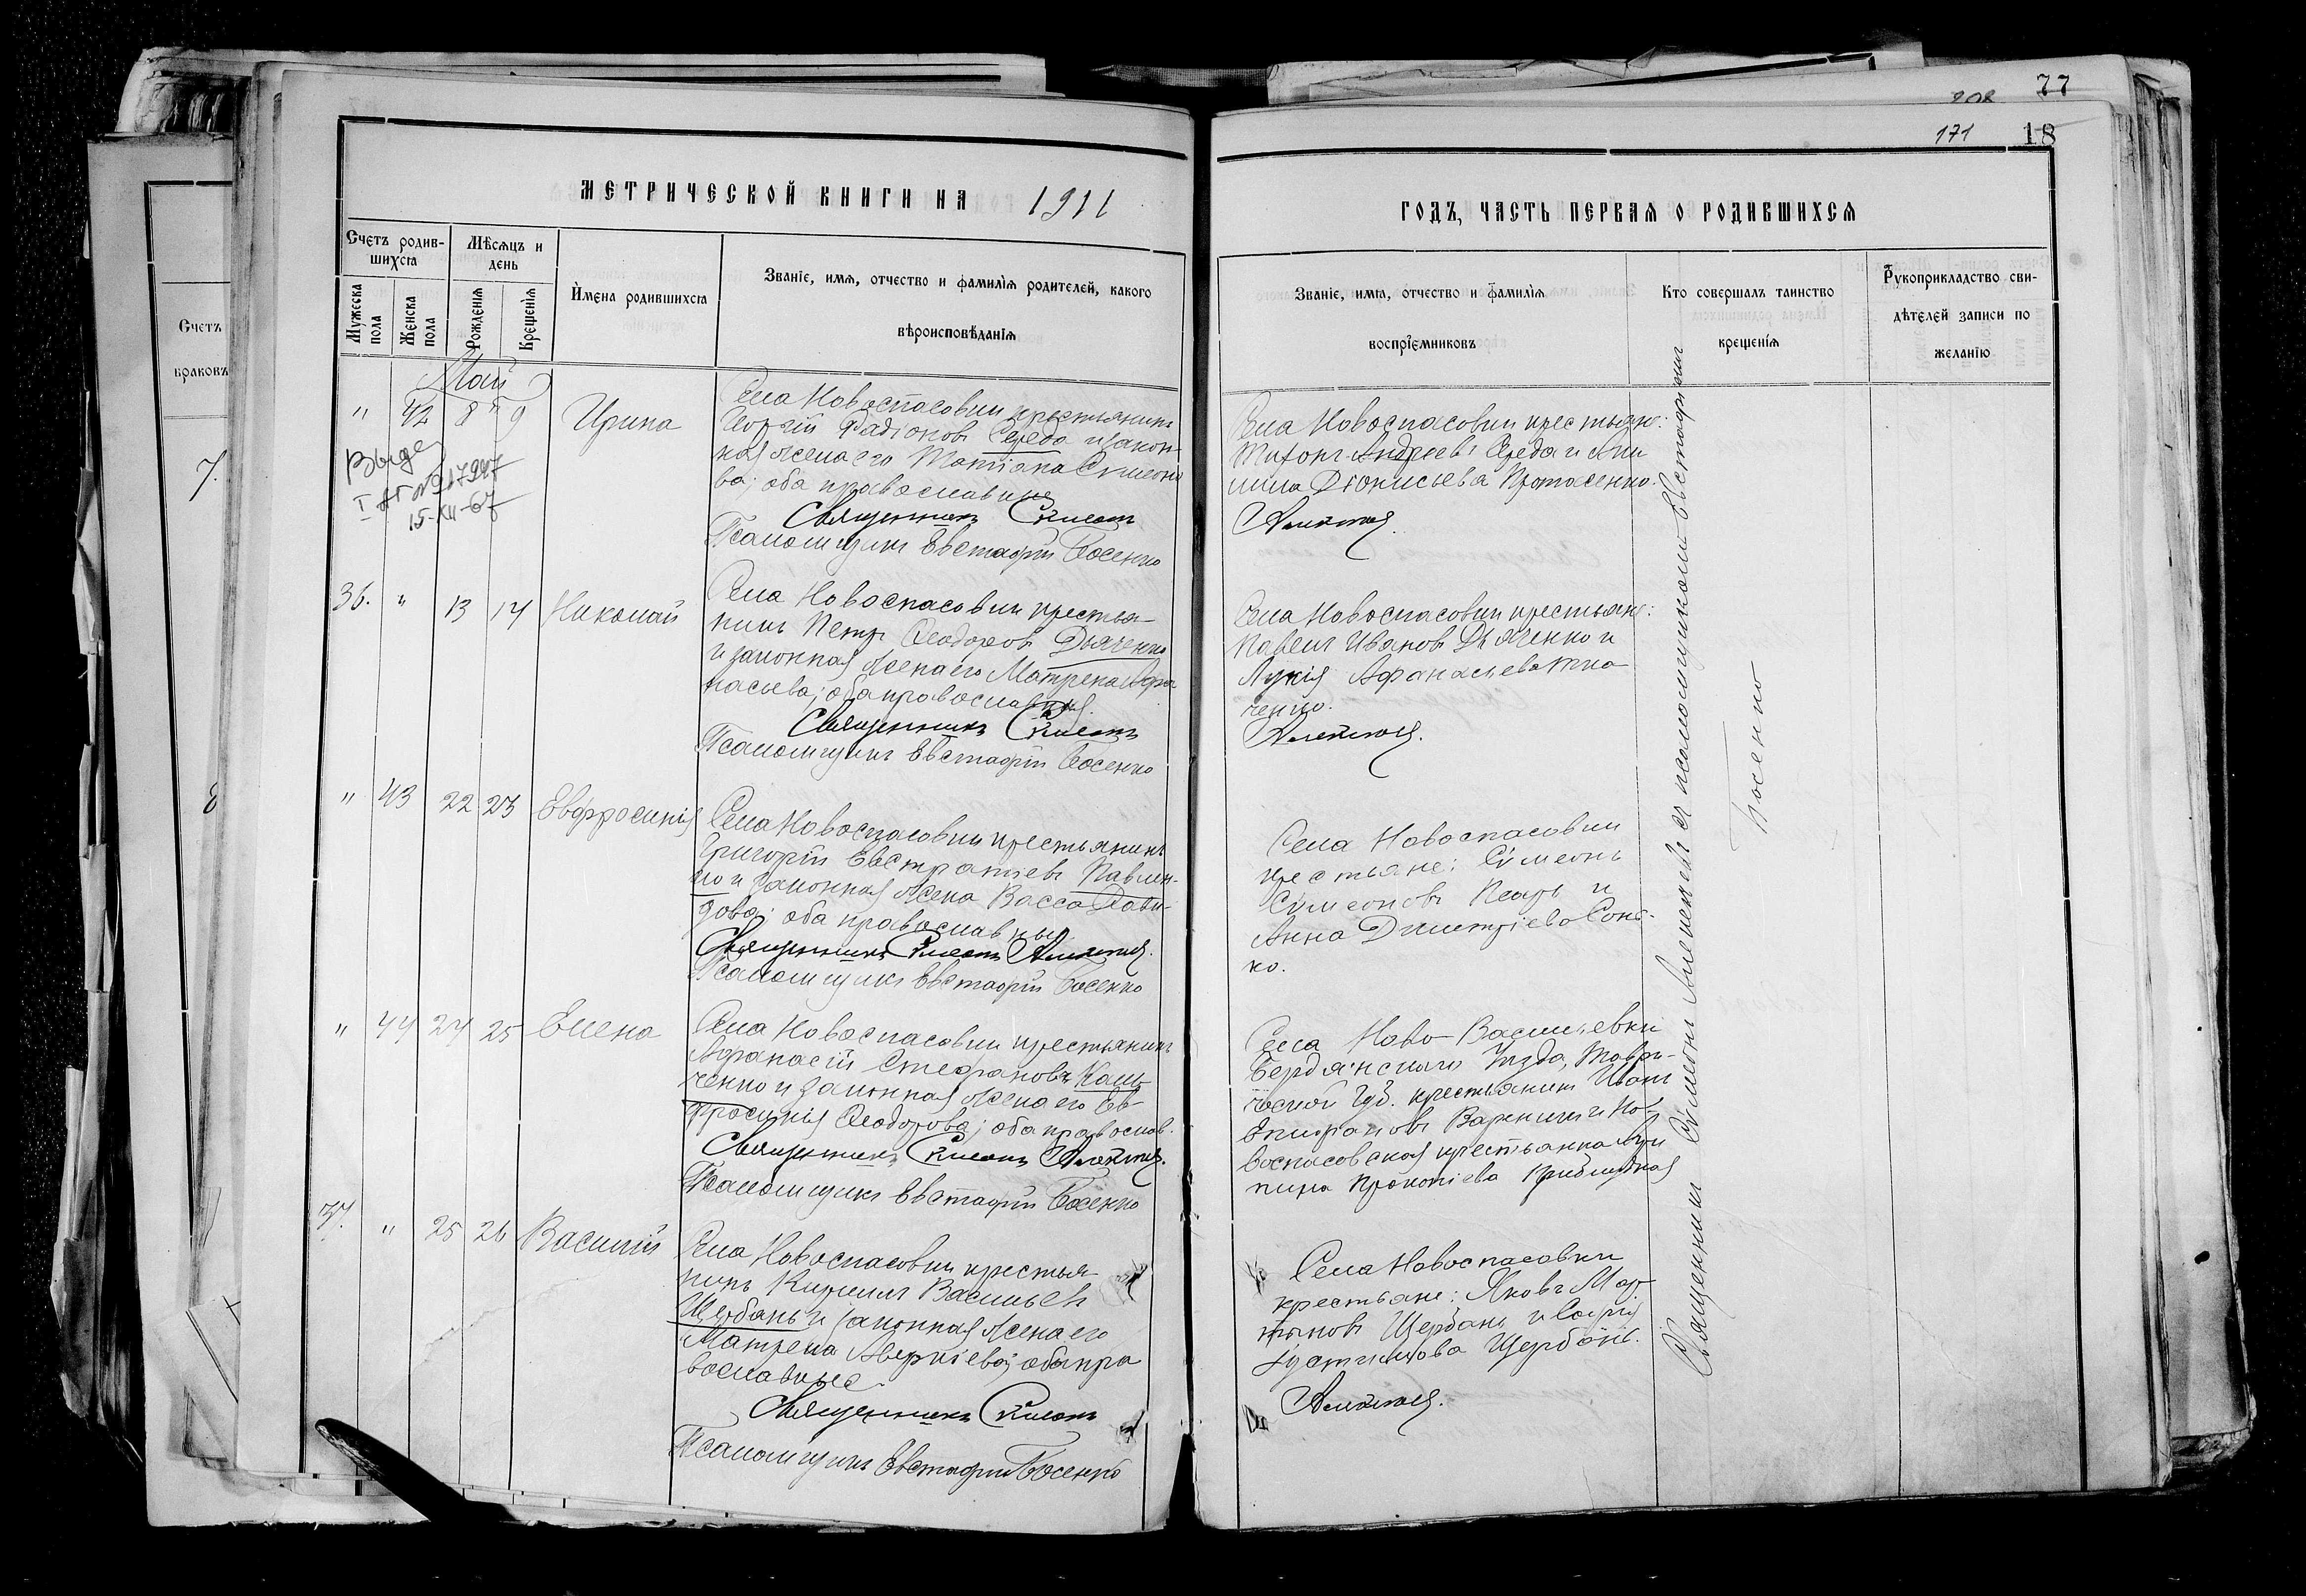 77
208
171 18
МЕТРИЧЕСКОЙ КНИГИ НА 1911
ГОДЪ, ЧАСТЬ ПЕРВАЯ О РОДИВШИХСЯ
Счетъ родив-
шихся
Мѣсяцъ и
день
Имена родившихся
Званіе, имя, отчество и фамилія родителей, какого
вѣроисповѣданія
Мужеска
пола
Женска
пола
Рожденія
Крещенія
Званіе, имя, отчество и фамилія
воспріемниковъ
Кто совершалъ таинство
крещенія
Рукоприкладство сви-
дѣтелей записи по
желанію
Счетъ
браковъ
7.
8
Май
" 42 8 9 Ирина
15-XII-67
Села Новоспасовки крестьянинъ
Георгій Радіоновъ Середа и закон-
ная жена его Татіана Симеоно
ва; оба православные
Священникъ Симеонъ
Псаломщикъ Евстафій Босенко
Села Новоспасовки крестьяне:
Тихонъ Андреевъ Середа и
Діонисьева Протосенко.
Алексеевъ
36. " 13 14 Николай
Села Новоспасовки крестья-
нинъ Петръ Феодоровъ Дьяченко
и законная жена его Матрена Афа
насьева; оба православные.
Священникъ Симеонъ
Псаломщикъ Евстафій Босенко
Села Новоспасовки крестьяне:
Павелъ Ивановъ Дьяченко и
Лукія Афанасьева Тка
ченко.
" 43 22 23 Евфросинія
Села Новоспасовки крестьянинъ
Григорій Евстратіевъ Павлен-
ко и законная жена Васса Дави-
дова; оба православные.
Священникъ Симеонъ
Псаломщикъ Евстафій Босенко
Села Новоспасовки
крестьяне: Симеонъ
Симеоновъ Псарь и
Анна Димитріева Сонь-
ко.
" 44 24 25 Елена
Села Новоспасовки крестьянинъ
Афанасій Стефановъ Каль-
ченко и законная жена его Ев-
фросинія Феодорова; оба православ.
Священникъ Симеонъ
Псаломщикъ Евстафій Босенко
Села Ново-Васильевки
Бердянскаго Уѣзда, Таври-
ческой Губ. крестьянинъ Иванъ
Епифановъ Варникъ и Но-
воспасовская крестьянка Агри
пина Прокопіева Приблудная
37. " 25 26 Василій
Села Новоспасовки крестья-
нинъ Кириллъ Васильевъ
Щербань и законная жена его
Матрена Аверкіева; оба пра
вославные
Священникъ Симеонъ
Псаломщикъ Евстафій Босенко
Села Новоспасовки
крестьяне: Яковъ Мар-
тыновъ Щербань и Софія
Іустинова Щербань.
Священникъ Симеонъ съ псаломщикомъ Евстафіемъ
Босенко